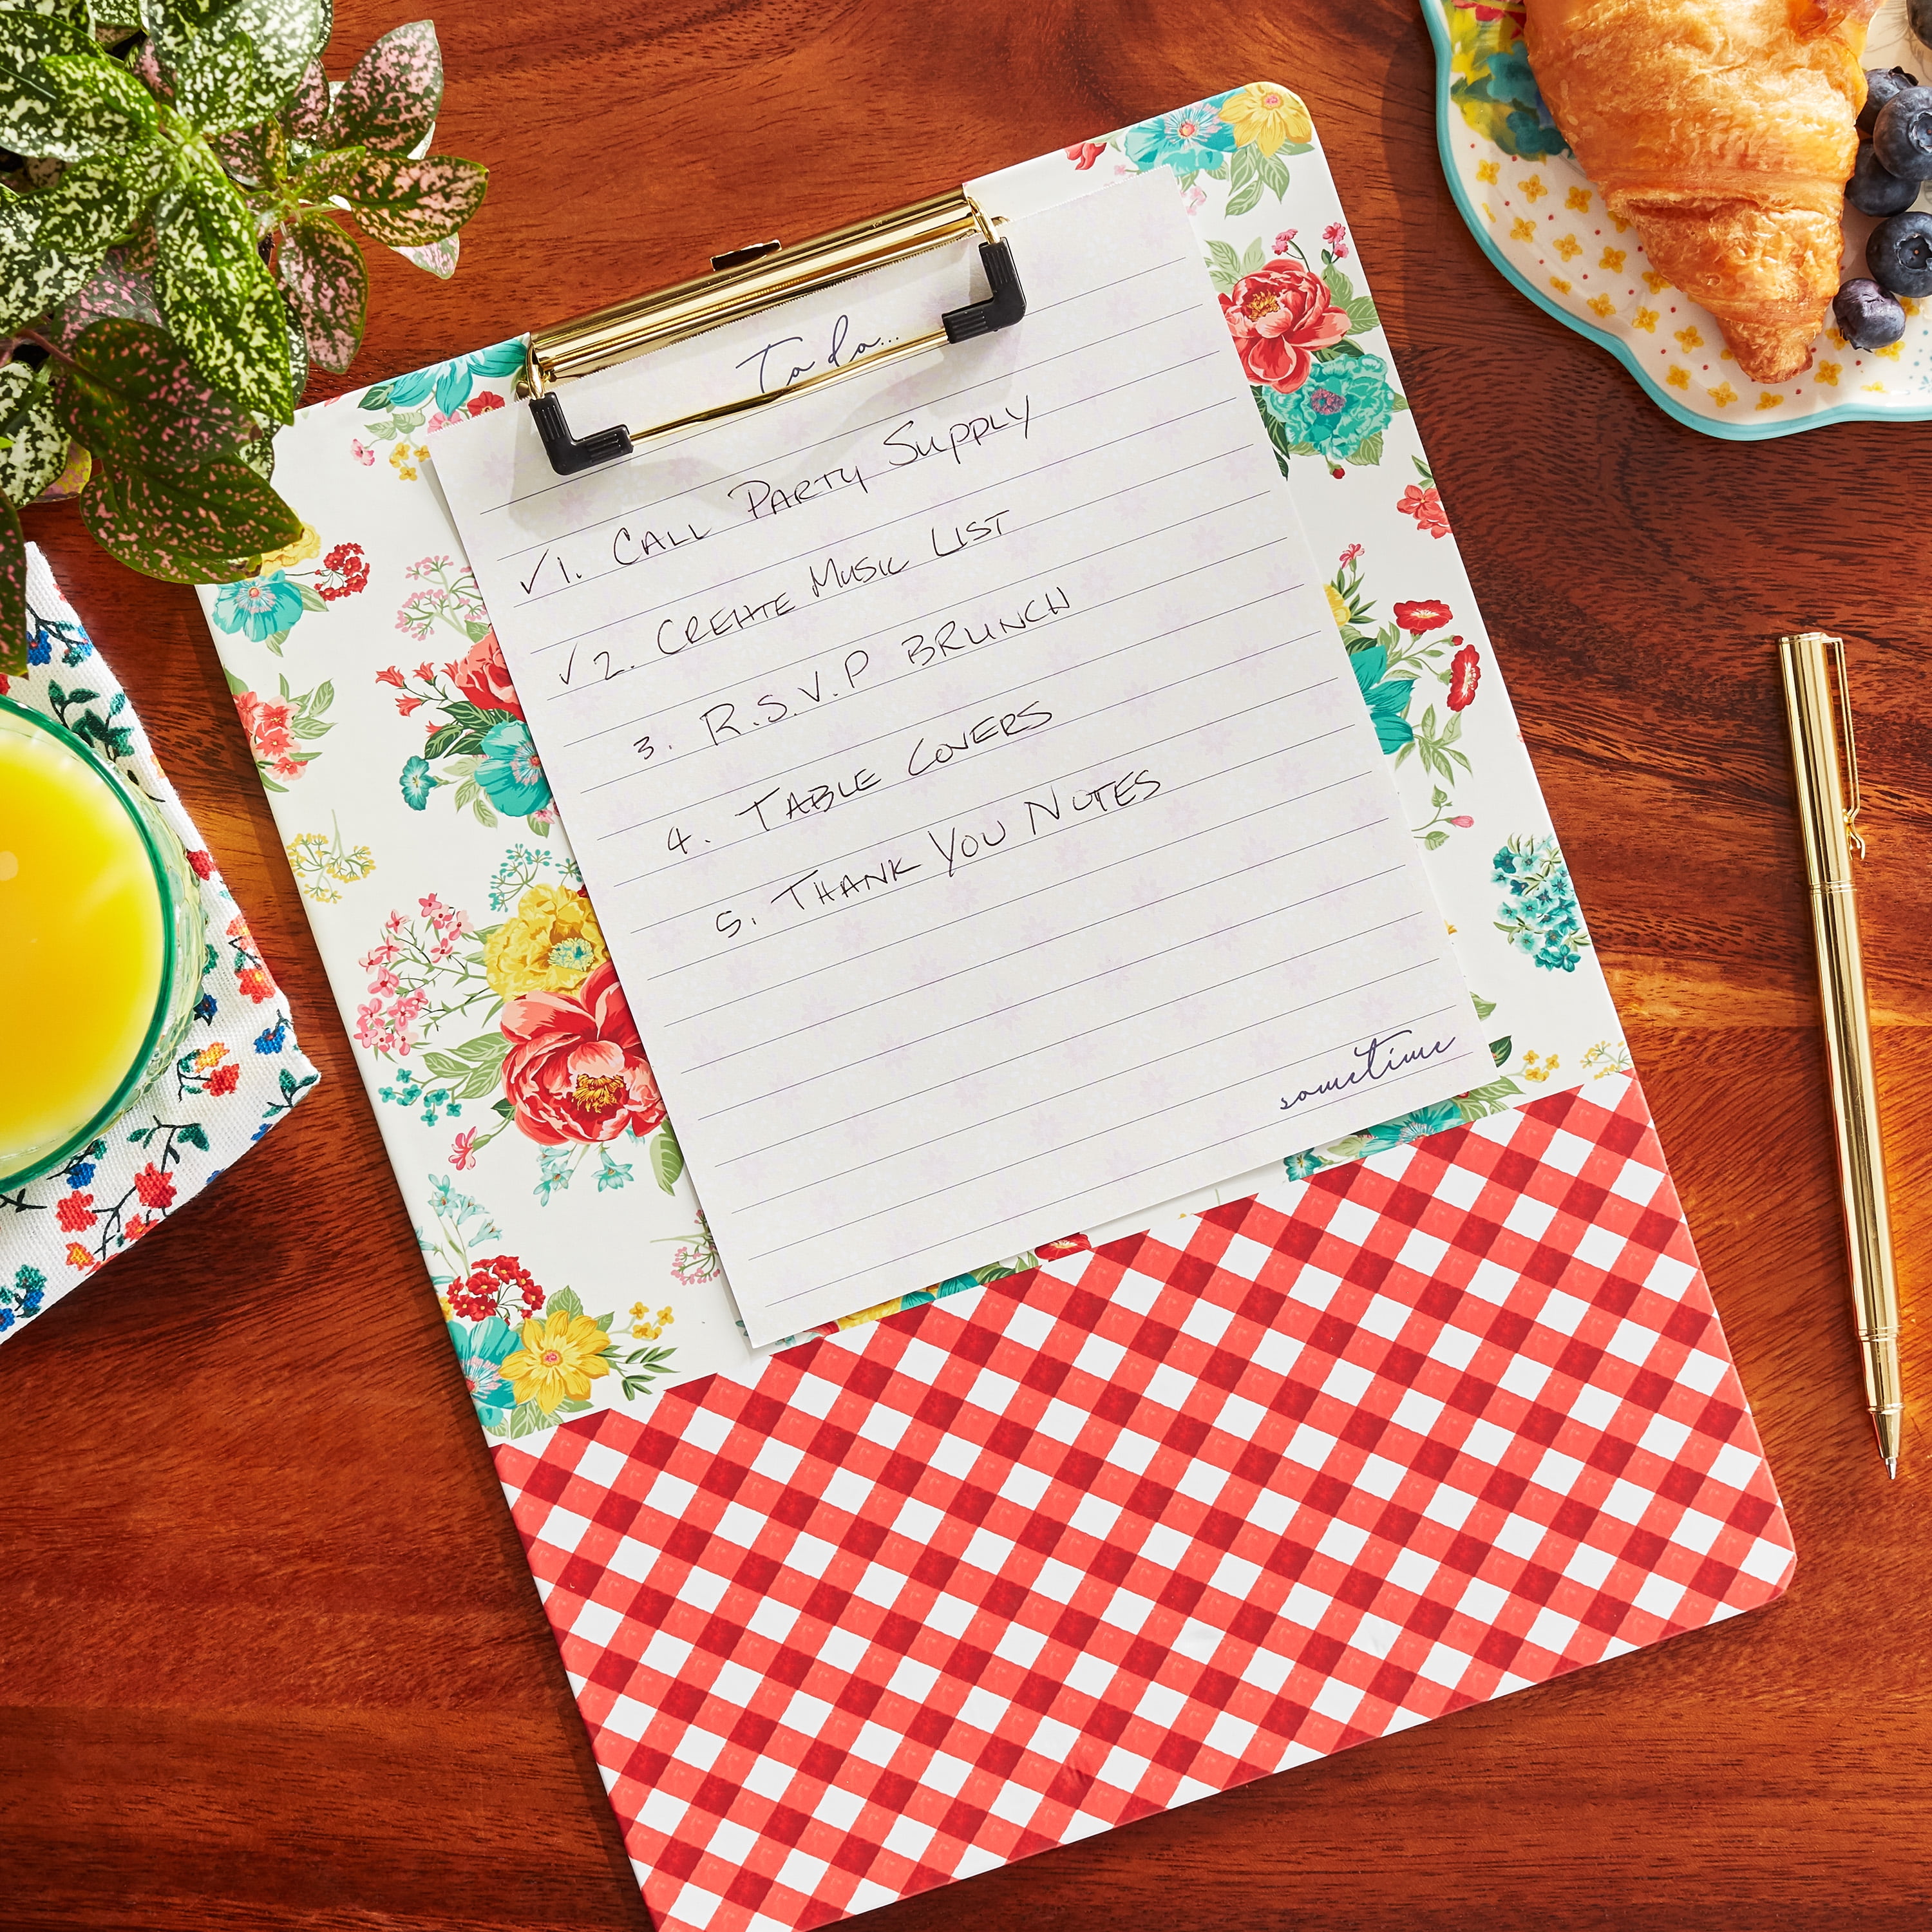 To do...
✓1. CALL PARTY SUPPLY
✓2. CREATE MUSIC LIST
3. R.S.V.P BRUNCH
4. TABLE COVERS
5. THANK YOU NOTES
sometime